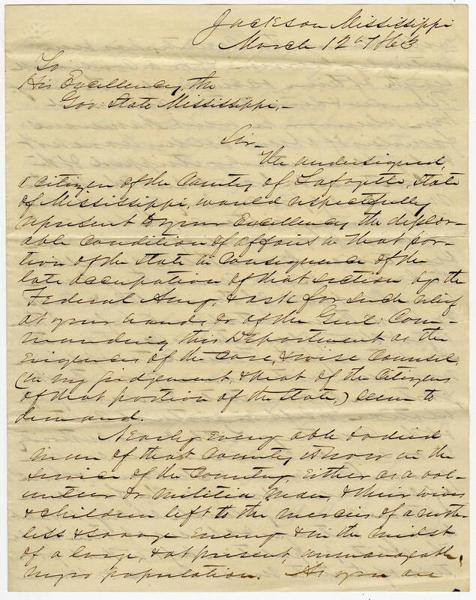 Jackson Mississippi
March 12th 1863
To
His Excellency, the
Gov. State Mississippi,-
Sir-
The undersigned,
a citizen of the County of Lafayette, State
of Mississippi, would respectfully
represent to your Excellency the deplor-
able condition of affairs in that por-
tion of the State in consequence of the
late occupation of that section by the
Federal Army, & ask for such relief
at your hand or of the Genl. Com-
manding this Department as the
exigencies of the case, & wise counsel,
(in my judgement, & that of the citizens
of that portion of the State,) seem to
demand.
Nearly every able bodied
man of that County is now in the
service of the Country either as a vol-
unteer or militia man, & their wives
& children left to the mercies of a ruth-
less & savage enemy & in the midst
of a large, & at present, unmanageable
negro population. As you are